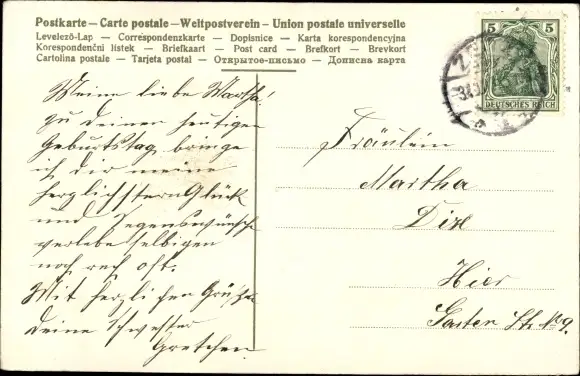 Postkarte — Carte postale — Weltpostverein — Union postale universelle
Levelező-Lap — Correspondenzkarte — Dopisnice — Karta korespondencyjna
Korespondenční lístek — Briefkaart — Post card — Brefkort — Brevkort
Cartolina postale — Tarjeta postal — Открытое-письмо — Дописна карта
5 5
DEUTSCHES REICH
Meine liebe Martha!
zu deinem heutigen
Geburtstag bringe
ich dir meine
herzlichsten Glück
und Segenswünsche
verlebe selbigen
noch rech oft.
Mit herzlichen Grüßen
deine Schwester
Gretchen.
Fräulein
Martha
Hier
Garten Str. No 9.